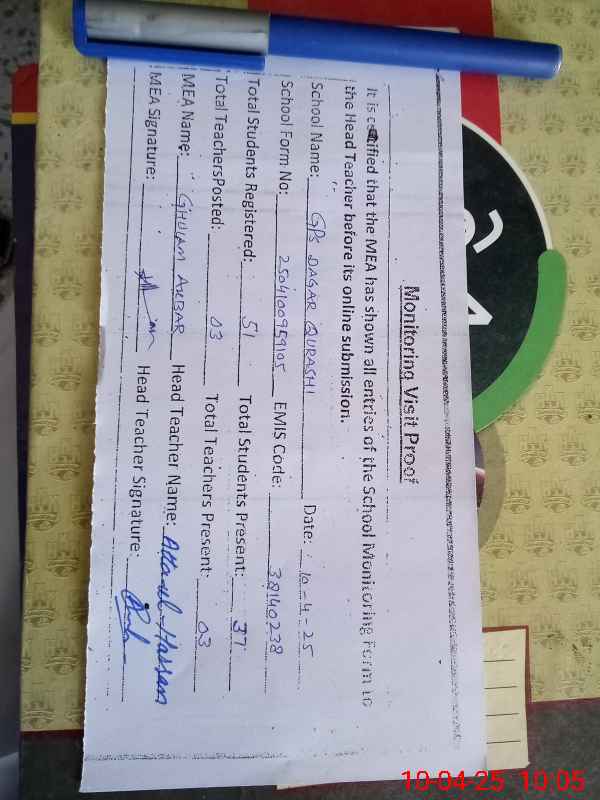 Monitoring Visit Proof
It is certified that the MEA has shown all entries of the School Monitoring Form to
the Head Teacher before its online submission.
School Name: GPS DAGAR QURASHI Date: 10-4-25
School Form No: 2504100959105 EMIS Code: 38140238
Total Students Registered: 51 Total Students Present: 37
Total TeachersPosted: 03 Total Teachers Present: 03
MEA Name: GHULAM AKBAR Head Teacher Name: Hassan
MEA Signature: Head Teacher Signature:
10-04-25 10:05